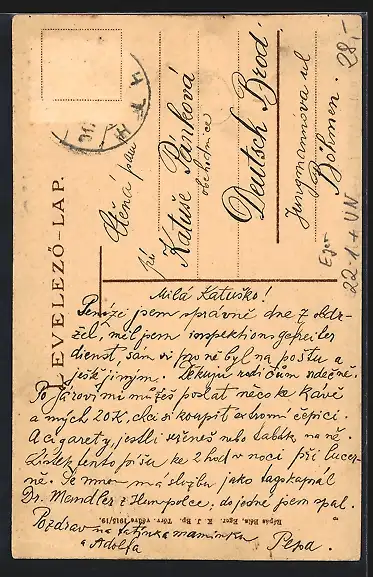 LEVELEZŐ-LAP.
Ctěná paní
Katuše Pánková
obchodnice
Deutsch Brod
Jungmannova ul
Böhmen.
28,-
Eger
221+UN
Milá Katuško!
Peníze jsem správně dne 7 obdr-
žel, měl jsem inspektions gefreiter
dienst, sám si pro ně byl na poštu a
ještě jiným. Děkuju rodičům uděčně.
Po Járovi mi můžeš poslat něco ke kávě
a mých 20K, chci si koupit extrovní čepici.
A cigarety, jestli vezmeš nebo na ně.
Lístek tento píšu ke 2 hod v noci při lucer-
ně. Se mnou má službu jako tagskaprál
Dr. Mandler z Humpolce, dojedné jsem spal.
Pozdrav na tatínka maminku
a Adolfa
Pepa.
Répás Béla, Eger. K. J. Bp. Törv. védve 1915/19.